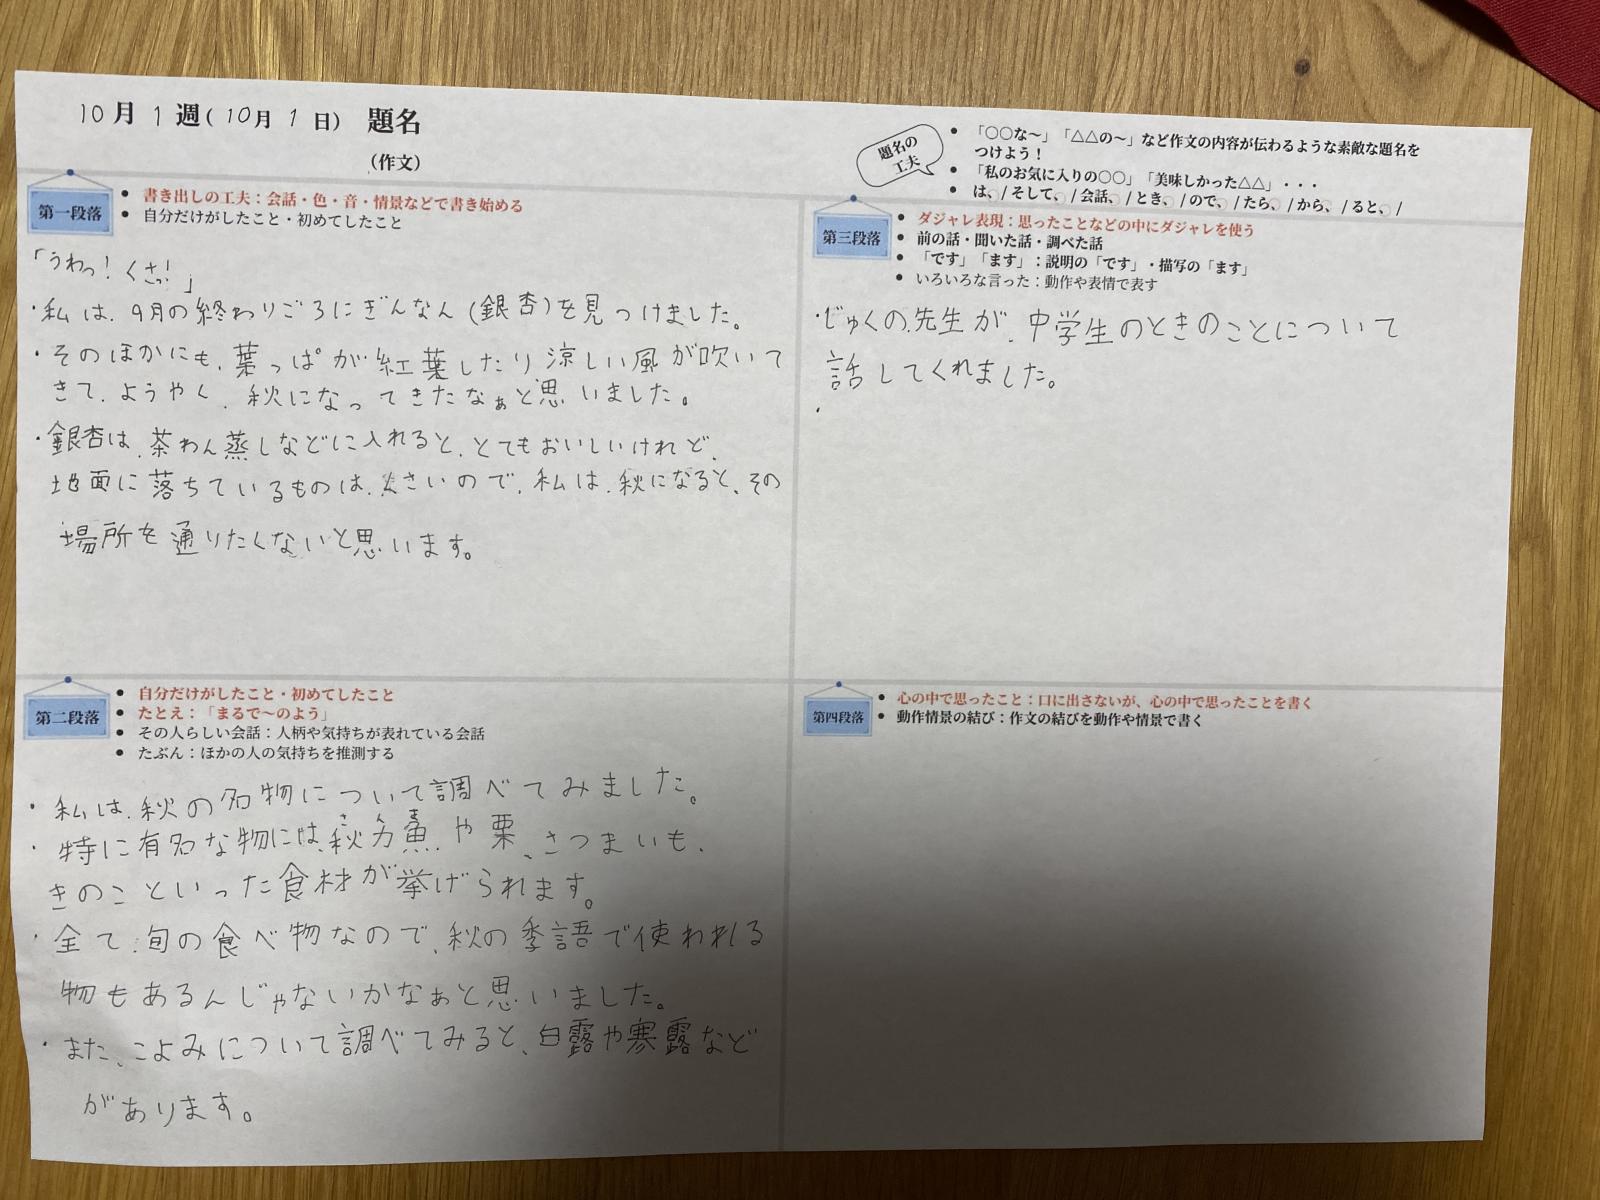 10月1週(10月1日) 題名
(作文)
題名の
工夫
• 「〇〇な～」「△△の～」など作文の内容が伝わるような素敵な題名を
つけよう！
• 「私のお気に入りの〇〇」「美味しかった△△」・・・
• は、/ そして、/ 会話、/ とき、/ ので、/ たら、/ から、/ ると、/
第一段落
• 書き出しの工夫：会話・色・音・情景などで書き始める
• 自分だけがしたこと・初めてしたこと
「うわっ！くさっ！」
・私は、9月の終わりごろにぎんなん(銀杏)を見つけました。
・そのほかにも、葉っぱが紅葉したり涼しい風が吹いて
きて、ようやく、秋になってきたなぁと思いました。
・銀杏は、茶わん蒸しなどに入れると、とてもおいしいけれど、
地面に落ちているものは、くさいので、私は、秋になると、その
場所を通りたくないと思います。
第二段落
• 自分だけがしたこと・初めてしたこと
• たとえ：「まるで～のよう」
• その人らしい会話：人柄や気持ちが表れている会話
• たぶん：ほかの人の気持ちを推測する
・私は、秋の名物について調べてみました。
さんま
・特に有名な物には、秋刀魚、や栗、さつまいも、
きのこといった食材が挙げられます。
・全て、旬の食べ物なので、秋の季語で使われる
物もあるんじゃないかなぁと思いました。
・また、こよみについて調べてみると、白露や寒露など
があります。
第三段落
• ダジャレ表現：思ったことなどの中にダジャレを使う
• 前の話・聞いた話・調べた話
• 「です」「ます」：説明の「です」・描写の「ます」
• いろいろな言った：動作や表情で表す
・じゅくの先生が、中学生のときのことについて
話してくれました。
・
第四段落
• 心の中で思ったこと：口に出さないが、心の中で思ったことを書く
• 動作情景の結び：作文の結びを動作や情景で書く